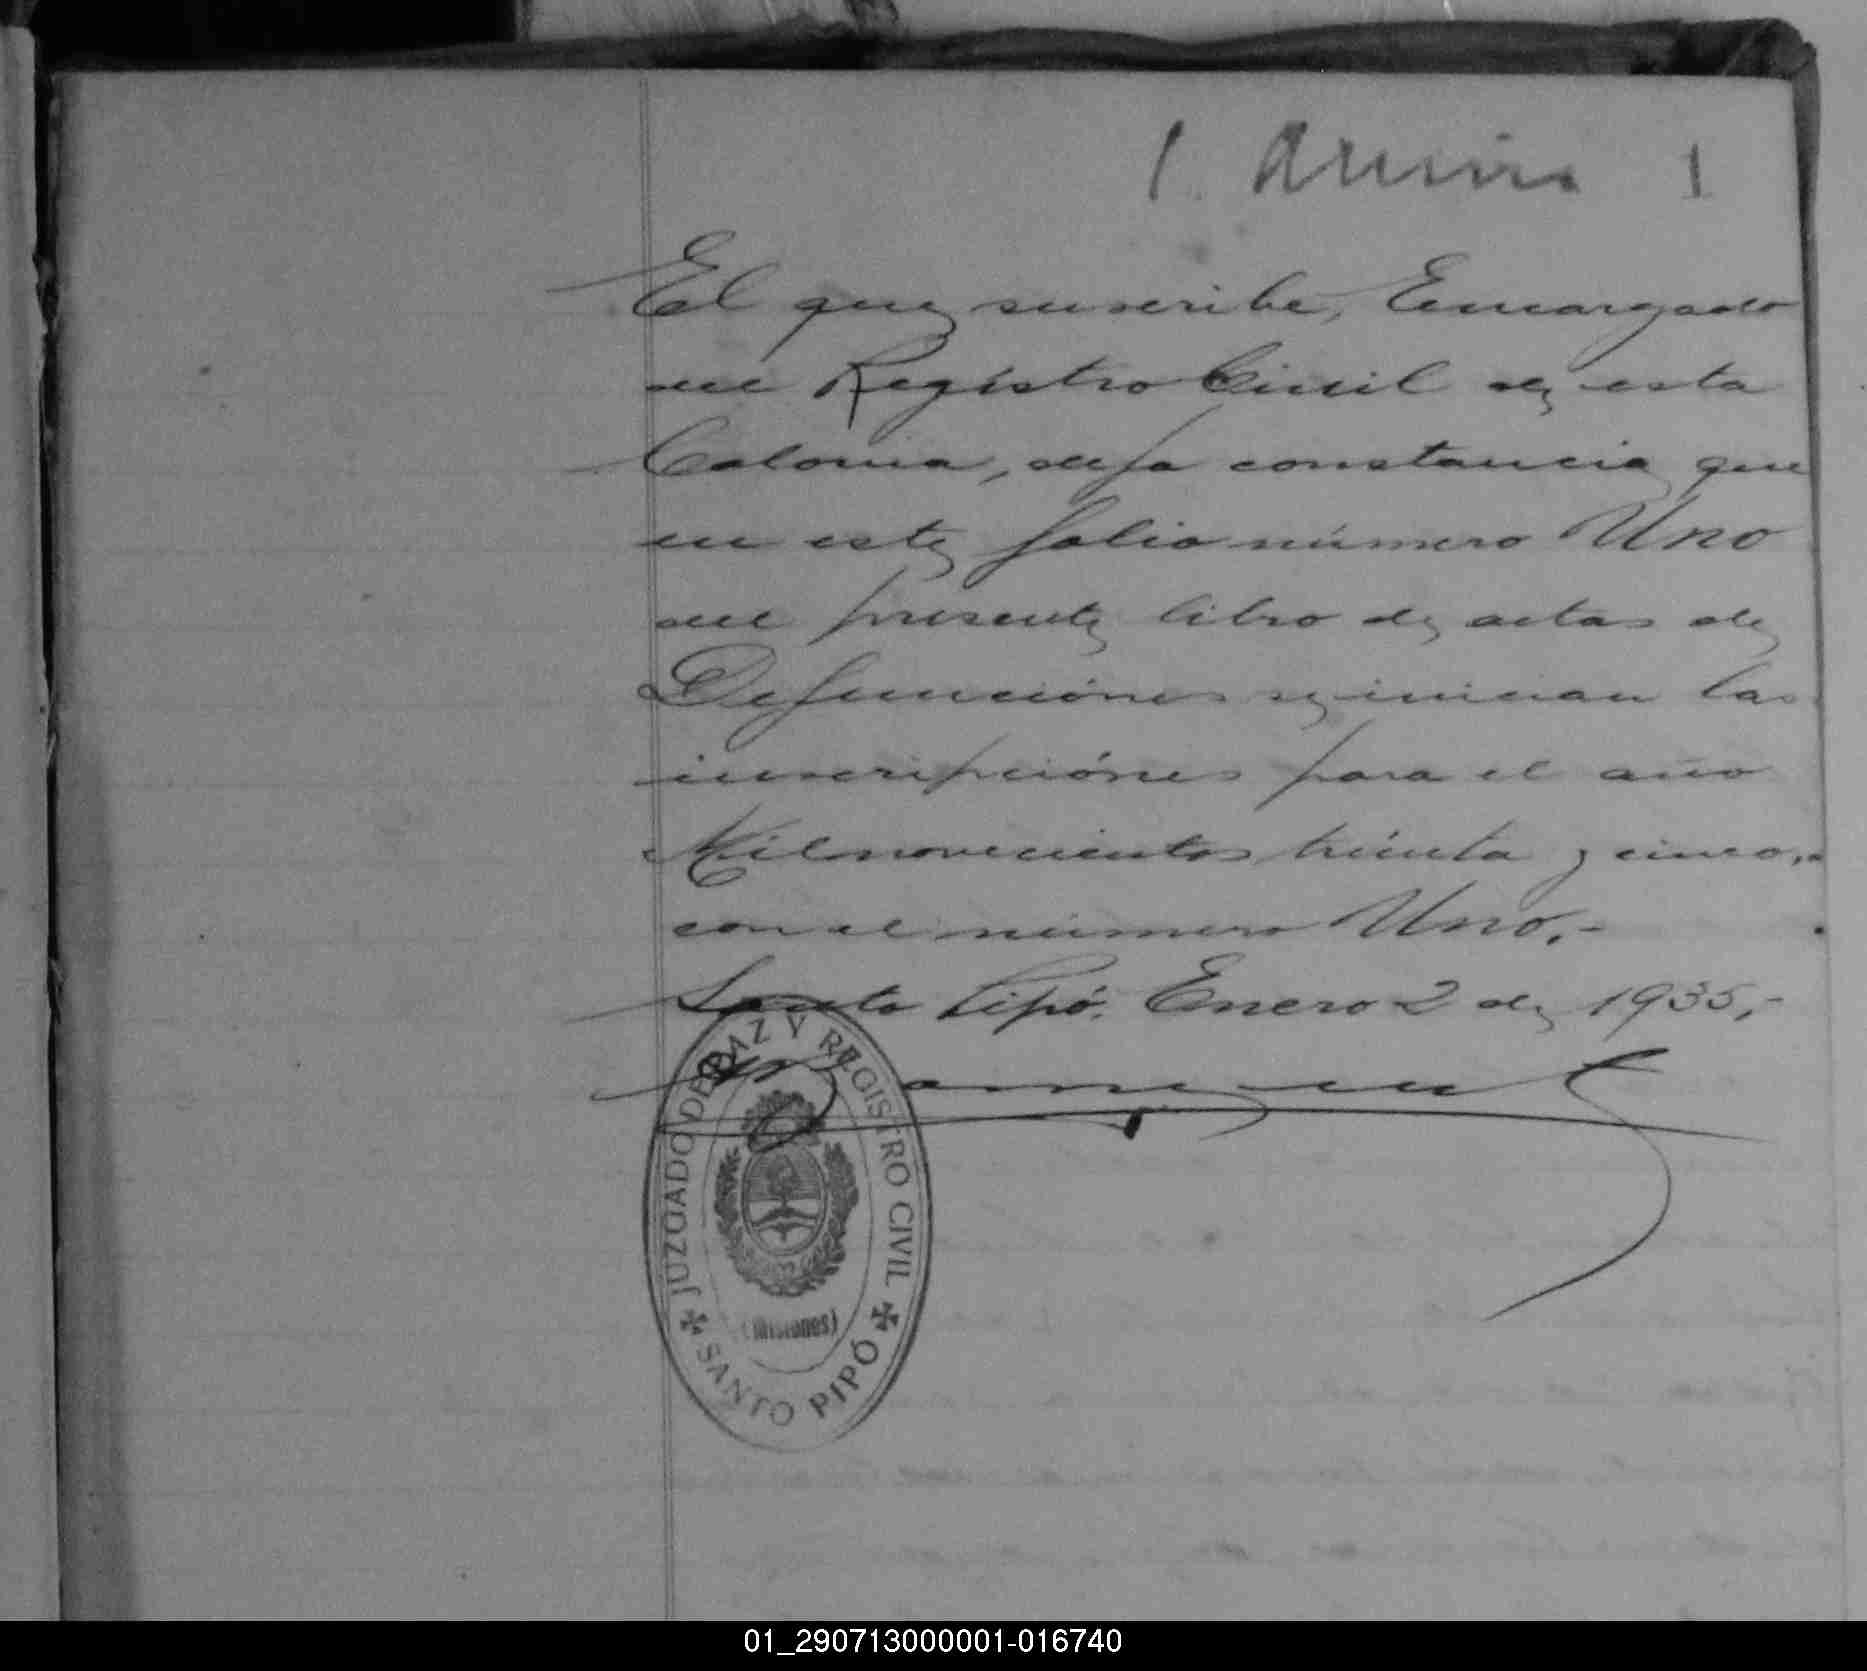 1 1
El que suscribe, Encargado
del Registro Civil de esta
Colonia, deja constancia que
en este folio número Uno
del presente libro de actas de
Defunciónes se inician las
inscripciónes para el año
Mil novecientos treinta y cinco,-
con el número Uno.-
Santo Pipó. Enero 2 de 1935,-
JUZGADO DE PAZ Y REGISTRO CIVIL
(Misiones)
SANTO PIPÓ
01_290713000001-016740